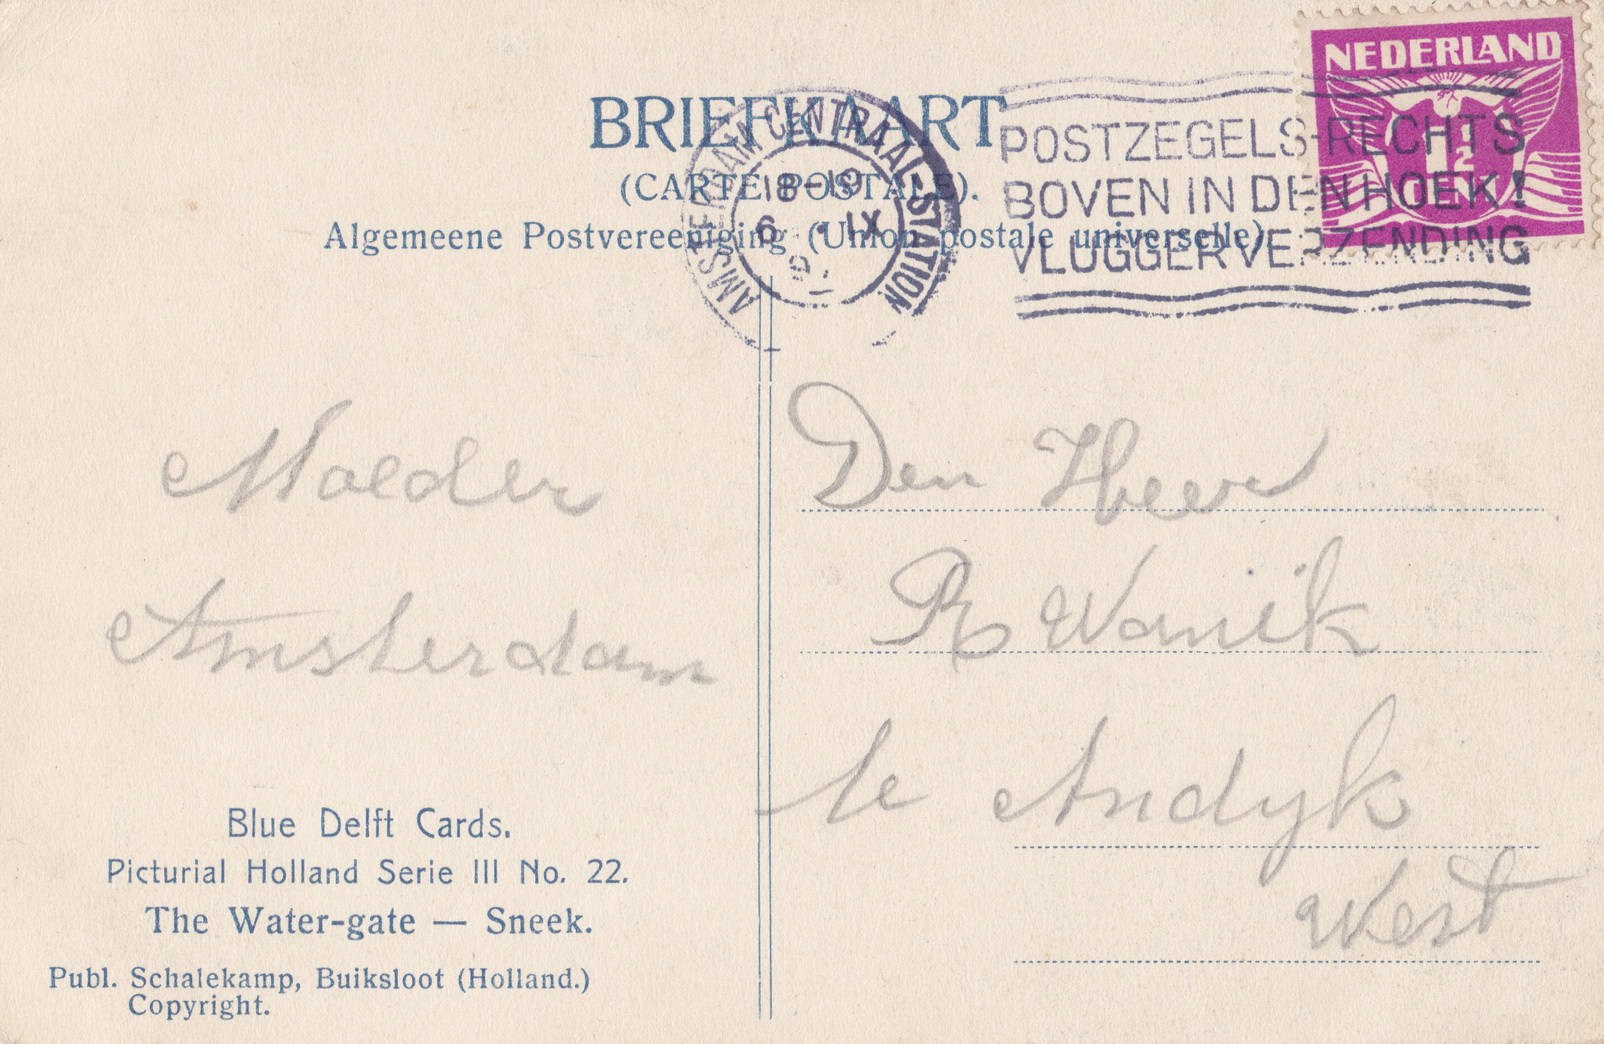 NEDERLAND
1½
CENT
BRIEFKAART
(CARTE POSTALE).
Algemeene Postvereeniging (Union postale universelle)
AMSTERDAM CENTRAAL-STATION
18-19
6 IX
POSTZEGELS-RECHTS
BOVEN IN DEN HOEK!
VLUGGER VERZENDING
Molder
Amsterdam
Den Heer
R Wanik
te Andyk
West
Blue Delft Cards.
Picturial Holland Serie III No. 22.
The Water-gate — Sneek.
Publ. Schalekamp, Buiksloot (Holland.)
Copyright.